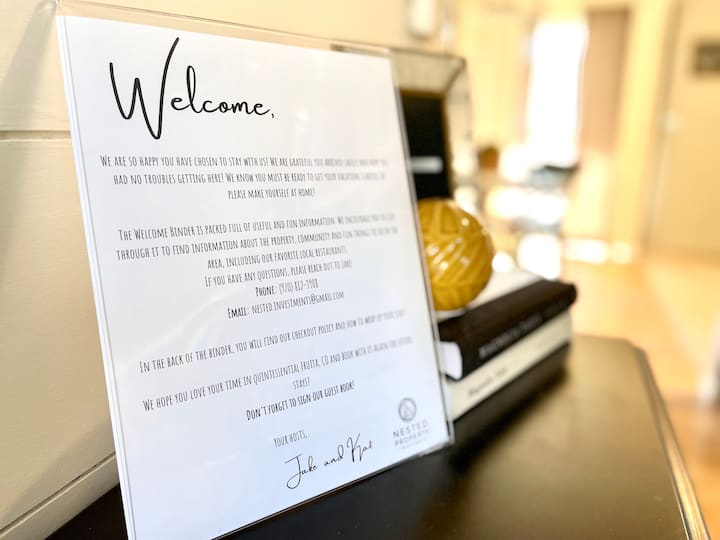 Welcome,
WE ARE SO HAPPY YOU HAVE CHOSEN TO STAY WITH US! WE ARE GRATEFUL YOU ARRIVED SAFELY AND HOPE YOU
HAD NO TROUBLES GETTING HERE! WE KNOW YOU MUST BE READY TO GET YOUR VACATION STARTED, SO
PLEASE MAKE YOURSELF AT HOME!
THE WELCOME BINDER IS PACKED FULL OF USEFUL AND FUN INFORMATION. WE ENCOURAGE YOU TO FLIP
THROUGH IT TO FIND INFORMATION ABOUT THE PROPERTY, COMMUNITY AND FUN THINGS TO DO IN THE
AREA, INCLUDING OUR FAVORITE LOCAL RESTAURANTS.
IF YOU HAVE ANY QUESTIONS, PLEASE REACH OUT TO JAKE
PHONE: (970) 812-3908
EMAIL: NESTED.INVESTMENTS@GMAIL.COM
IN THE BACK OF THE BINDER, YOU WILL FIND OUR CHECKOUT POLICY AND HOW TO WRAP UP YOUR STAY.
WE HOPE YOU LOVE YOUR TIME IN QUINTESSENTIAL FRUITA, CO AND BOOK WITH US AGAIN FOR FUTURE
STAYS!
DON'T FORGET TO SIGN OUR GUEST BOOK!
YOUR HOSTS,
Jake and Kat
NESTED
PROPERTY